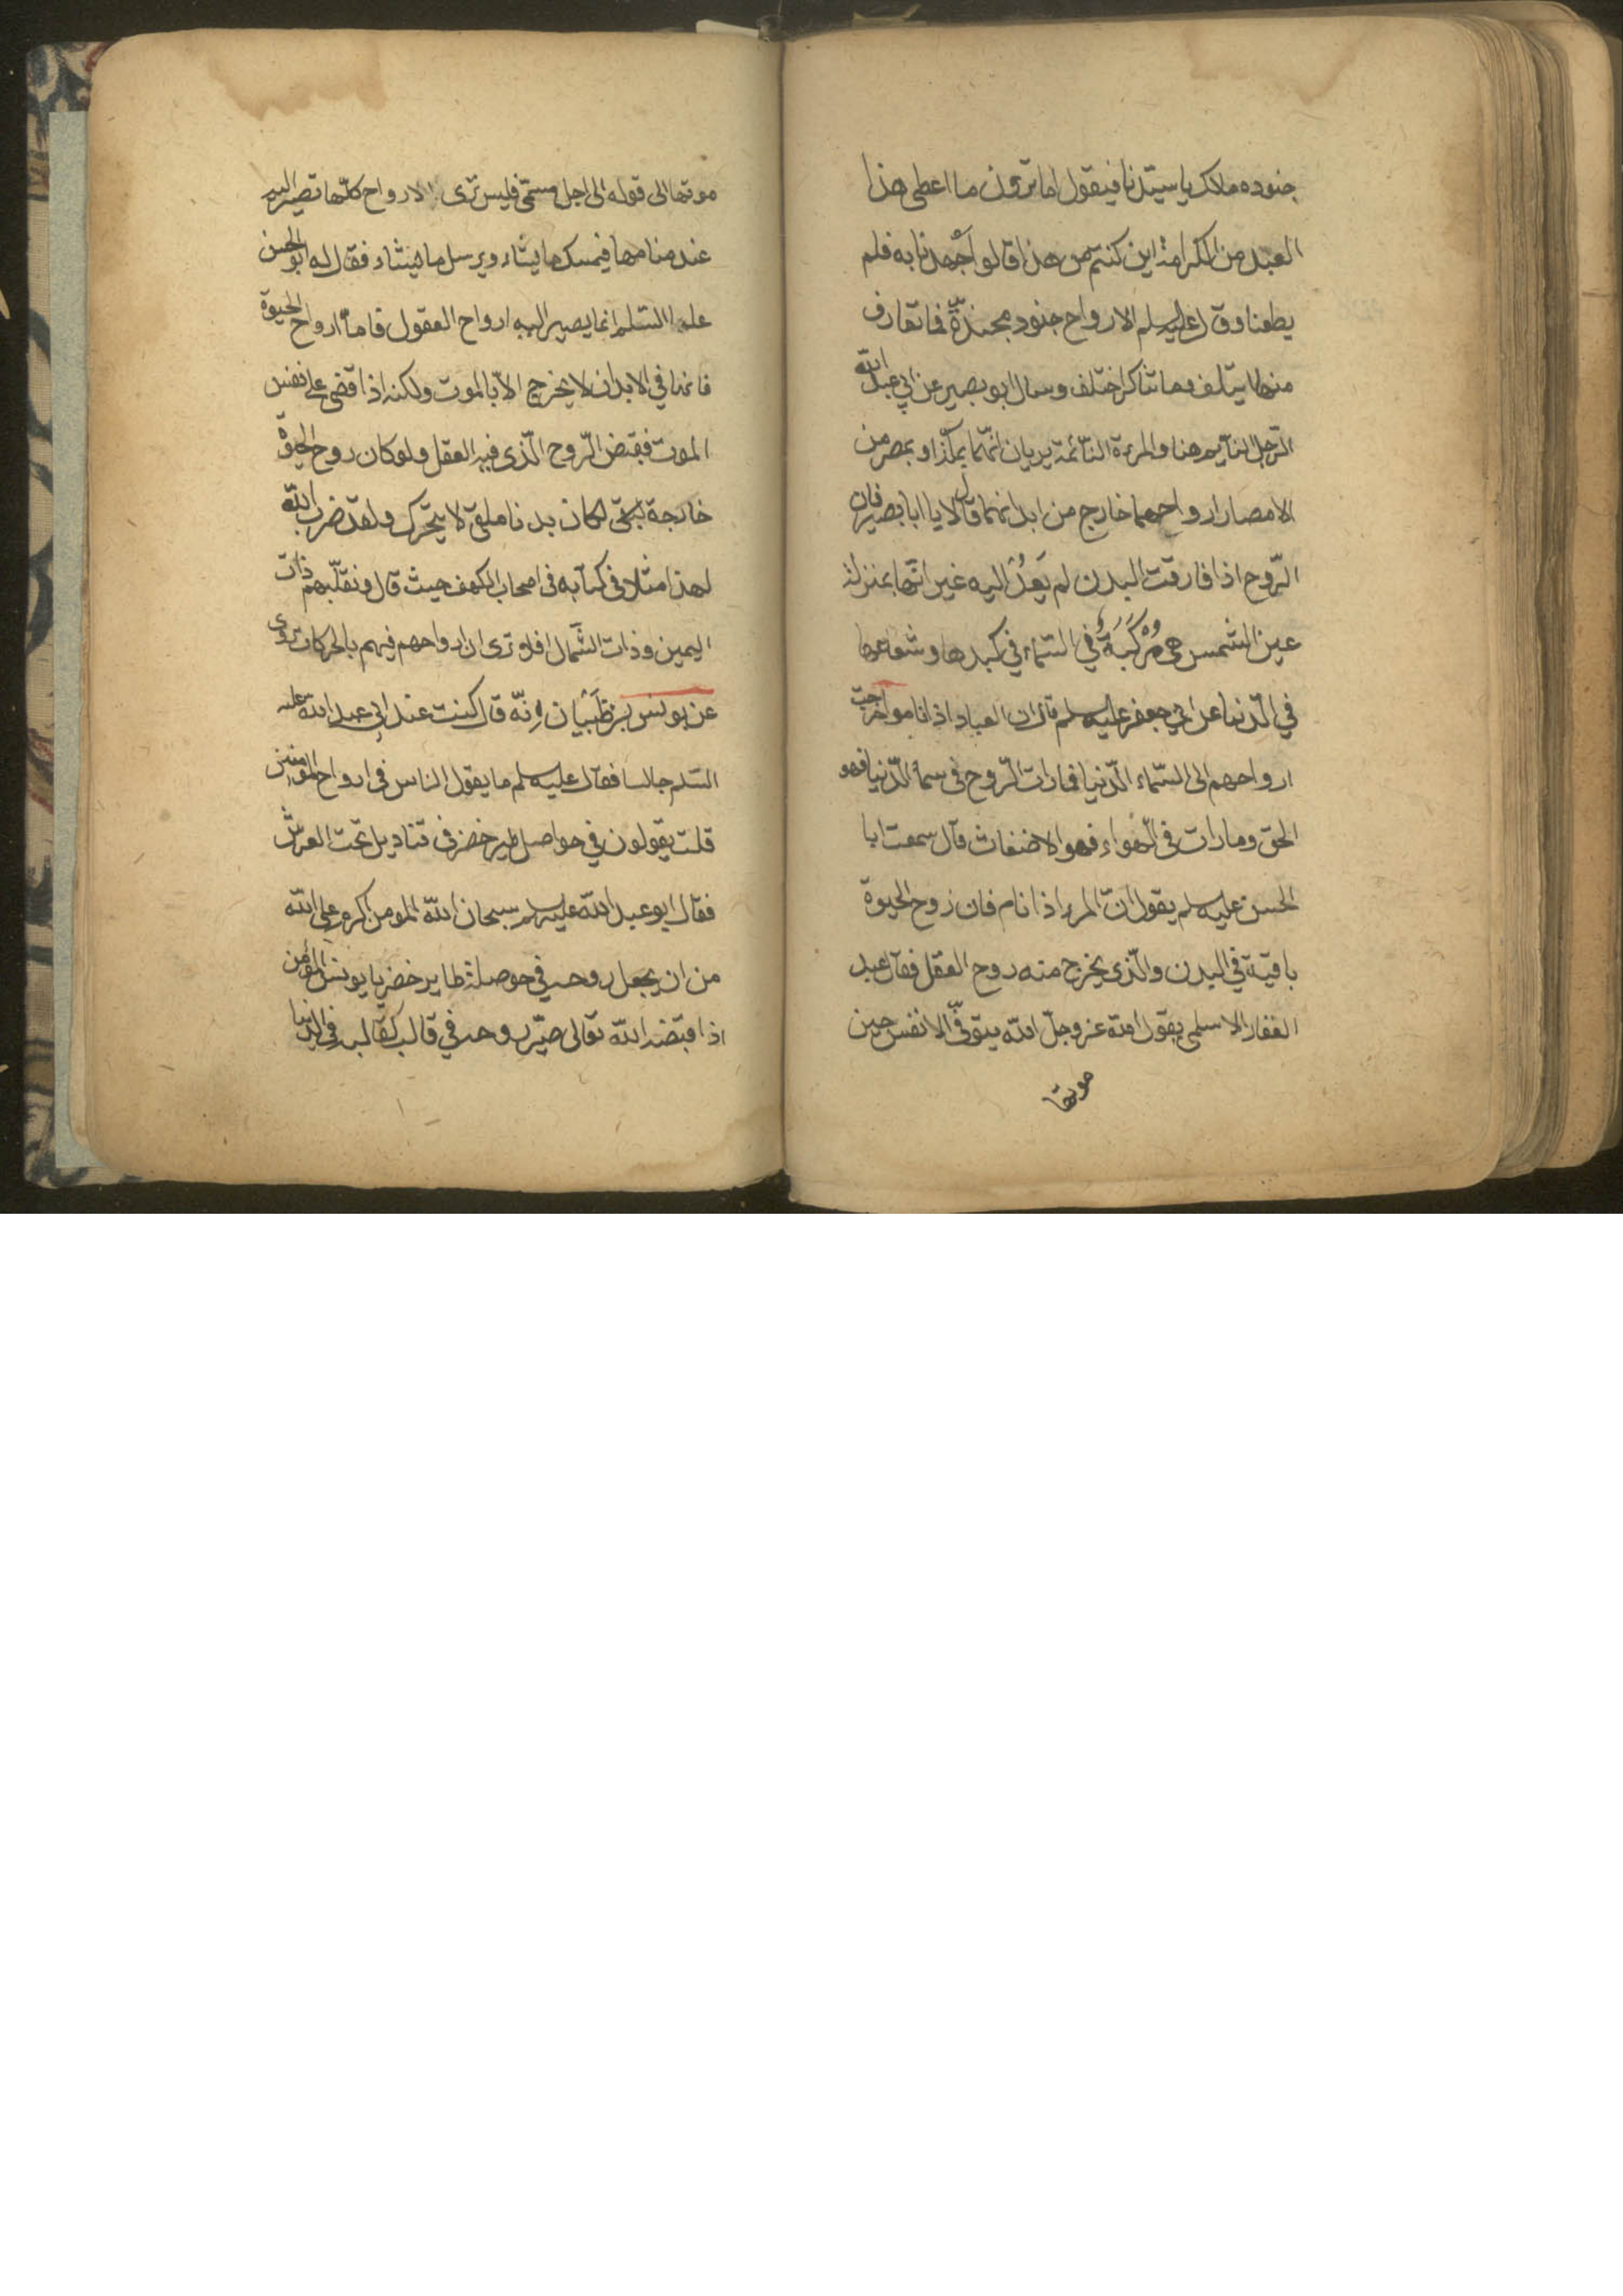 جنوده ملاك يا سيّدنا فيقول اما ترون ما اعطى هذا
العبد من الكرامة اين كنتم من هذا قالوا أجهدنا به فلم
يطعنا وقال عليه سلم الارواح جنود مجندةٌ فما تعارف
منها ايتلف وما تناكر اختلف وسال ابو بصير عن ابي عبد الله
الرّجل النآيم هنا والمرءة النّائمة يريان انهما بمكّة او بمصر من
الامصار ارواحهما خارج من ابدانهما قال لا يا ابا بصير فان
الرّوح اذا فارقت البدن لم يَعُدْ اليه غير انّها بمنزلة
عين الشمس هي مُرَكَبَةٌ في السّماء في كبدها وشعاعها
في الدّنيا عن ابي جعفر عليه سلم قال ان العباد اذا ناموا خرجت
ارواحهم الى السّماء الدّنيا فما رات الرّوح فى سمآ الدّنيا فهو
الحق وما رات فى الهواء فهو الاضغاث قال سمعت ابا
الحسن عليه سلم يقول انّ المرء اذا نام فان روح الحيوة
باقية في البدن والّذى يخرج منه روح العقل فقال عبد
الغفار الاسلمي يقول الله عز وجلّ الله يتوفّى الانفس حين
موتها
موتها الى قوله الى اجل مسمّى فليس ترى الارواح كلّها تصير اليه
عند منامها فيمسك ما يشاء ويرسل ما يشاء فقال له ابو الحسن
عليه السّلم انما يصير اليه ارواح العقول فاما ارواح الحيوة
فانها في الابدان لا يخرج الّا بالموت ولكنه اذا قضى على نفس
الموت فقبض الرّوح الّذى فيه العقل ولو كان روح الحيوة
خارجة لكان بدنا ملقى لا يتحرك ولقد ضرب الله
لهذا مثلا فى كتابه فى اصحاب الكهف حيث قال ونقلّبهم ذات
اليمين وذات الشّمال افلا ترى ان ارواحهم فيهم بالحركات روى
عن يونس بن ظَبْيَان انّه قال كنت عند ابي عبد الله عليه
السّلم جالسا فقال عليه سلم ما يقول الناس فى ارواح المؤمنين
قلت يقولون في حواصل طير خضر فى قناديل تحت العرش
فقال ابو عبد الله عليه سلم سبحان الله المومن اكرم على الله
من ان يجعل روحه في حوصلة طاير خضر يا يونس المؤمن
اذا قبضه الله تعالى صيّر روحه في قالب كقالبه فى الدّنيا